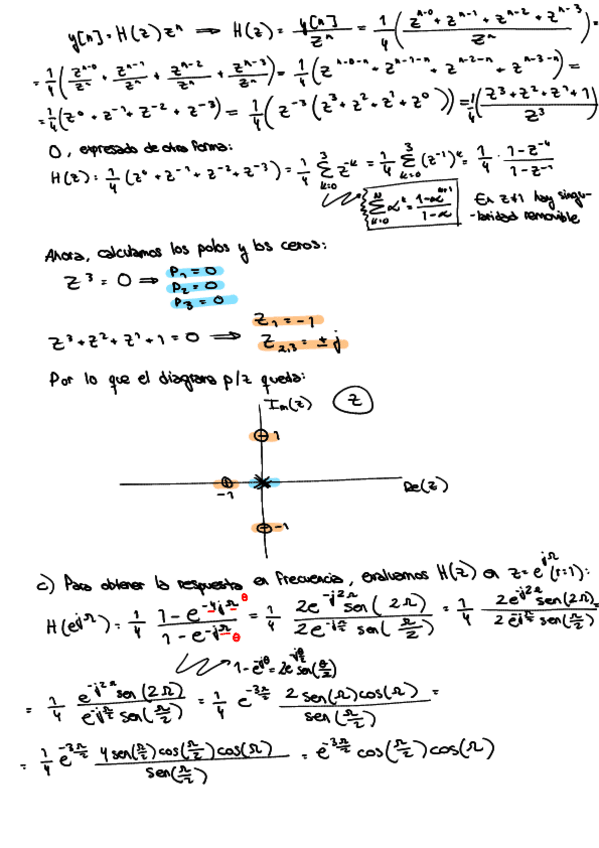 y[n] = H(z) zⁿ ⟹ H(z) = y[n]/zⁿ = 1/4 ( (z^(n-0) + z^(n-1) + z^(n-2) + z^(n-3)) / zⁿ ) =
= 1/4 ( z^(n-0)/zⁿ + z^(n-1)/zⁿ + z^(n-2)/zⁿ + z^(n-3)/zⁿ ) = 1/4 ( z^(n-0-n) + z^(n-1-n) + z^(n-2-n) + z^(n-3-n) ) =
= 1/4 ( z⁰ + z⁻¹ + z⁻² + z⁻³ ) = 1/4 ( z⁻³ ( z³ + z² + z¹ + z⁰ ) ) = 1/4 ( (z³ + z² + z¹ + 1) / z³ )
O, expresado de otra forma:
H(z) = 1/4 ( z⁰ + z⁻¹ + z⁻² + z⁻³ ) = 1/4 Σ_{k=0}^{3} z^(-k) = 1/4 Σ_{k=0}^{3} (z⁻¹)^k = 1/4 · (1 - z⁻⁴)/(1 - z⁻¹)
Σ_{k=0}^{N} α^k = (1 - α^(N+1))/(1 - α)
En z≠1 hay singu-
-laridad removible
Ahora, calculamos los polos y los ceros:
z³ = 0 ⟹ P₁ = 0
P₂ = 0
P₃ = 0
z³ + z² + z¹ + 1 = 0 ⟹ z₁ = -1
z₂,₃ = ± j
Por lo que el diagrama p/z queda:
Im(z)
z
1
-1
Re(z)
-1
c) Para obtener la respuesta en frecuencia, evaluamos H(z) en z = e^(jΩ) (r=1):
H(e^(jΩ)) = 1/4 (1 - e^(-4jΩ))/(1 - e^(-jΩ)) = 1/4 (2e^(-j2Ω) sen(2Ω))/(2e^(-jΩ/2) sen(Ω/2)) = 1/4 (2e^(-j2Ω) sen(2Ω))/(2e^(-jΩ/2) sen(Ω/2)) =
θ
θ
1 - e^(-jθ) = 2e^(-jθ/2) sen(θ/2)
= 1/4 (e^(-j2Ω) sen(2Ω))/(e^(-jΩ/2) sen(Ω/2)) = 1/4 e^(-3Ω/2) (2 sen(Ω) cos(Ω))/(sen(Ω/2)) =
= 1/4 e^(-3Ω/2) (4 sen(Ω/2) cos(Ω/2) cos(Ω))/(sen(Ω/2)) = e^(-3Ω/2) cos(Ω/2) cos(Ω)